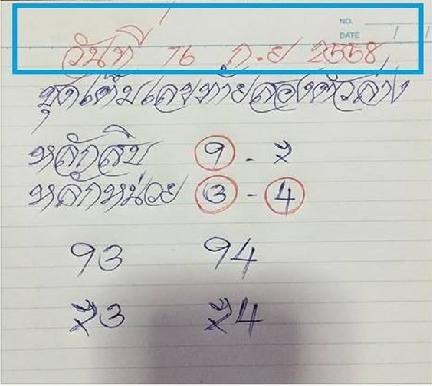 NO.
DATE / /
วันที่ 16 ก.ย 2558
ชุดเต็มเลขท้ายสองตัวล่าง
หลักสิบ 9 - 2
หลักหน่วย 3 - 4
93 94
23 24